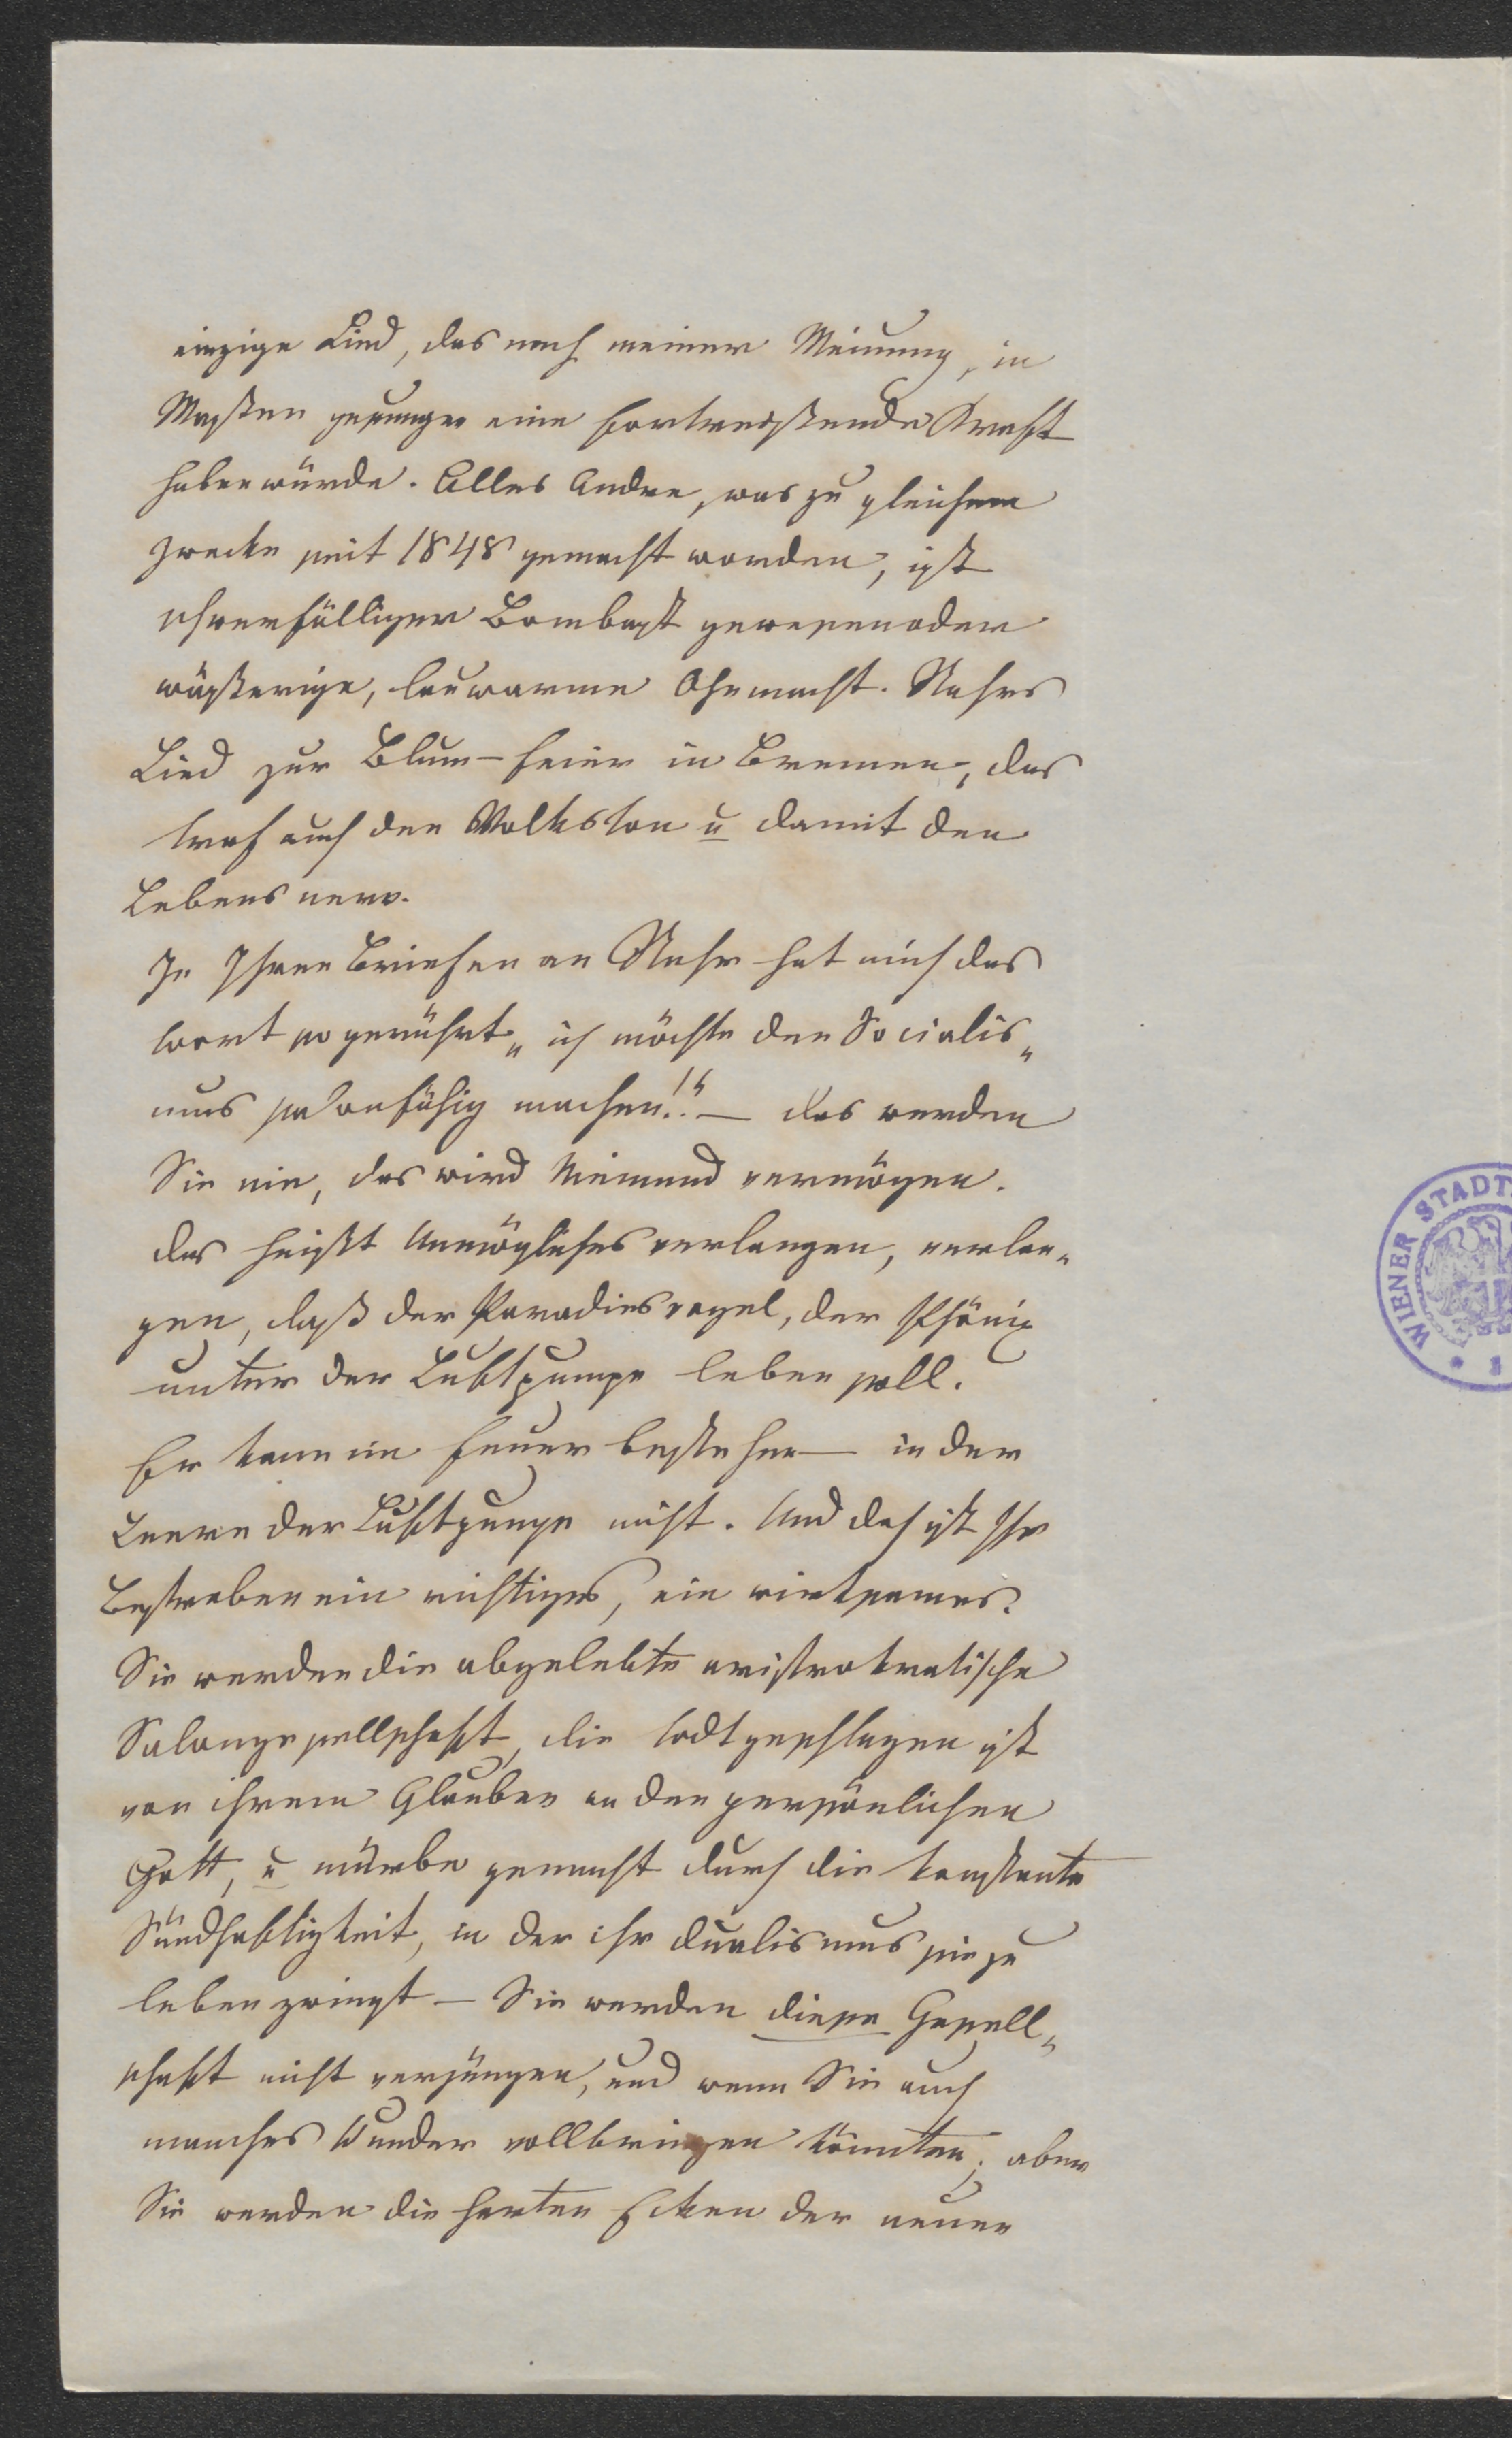 einzige Lied, das nach meiner Meinung, in
Massen gesungen eine fortreißende Kraft
haben würde. Alles Andre, was zu gleichem
Zwecke seit 1848 gemacht worden, ist
schwerfälliger Bombast gewesen oder
wässerige, lauwarme Ohnmacht. Ruhrs
Lied zur Blum-Feier in Bremen, das
traf auch den Volkston u damit den
Lebensnerv.
In Ihren Briefen an Ruhr hat mich das
Wort so gerührt „ich möchte den Socialis„
mus salonfähig machen!" — das werden
Sie nie, das wird Niemand vermögen.
das heißt Unmögliches verlangen, verlan„
gen, daß der Paradiesvogel, der Phönix
unter der Luftpumpe leben soll.
Er kann im Feuer bestehen — in der
Leere der Luftpumpe nicht. Und doch ist Ihr
Bestreben ein richtiges, ein wirksames.
Sie werden die abgelebte aristrokratische
Salongesellschaft, die todtgeschlagen ist
von ihrem Glauben an den persönlichen
Gott, u mürbe gemacht durch die konstante
Sündhaftigkeit, in der ihr Dualismus sie zu
leben zwingt — Sie werden diese Gesell„
schaft nicht verjüngen, und wenn Sie auch
manches Wunder vollbringen könnten; aber
Sie werden die harten Ecken der neuen
WIENER STADT